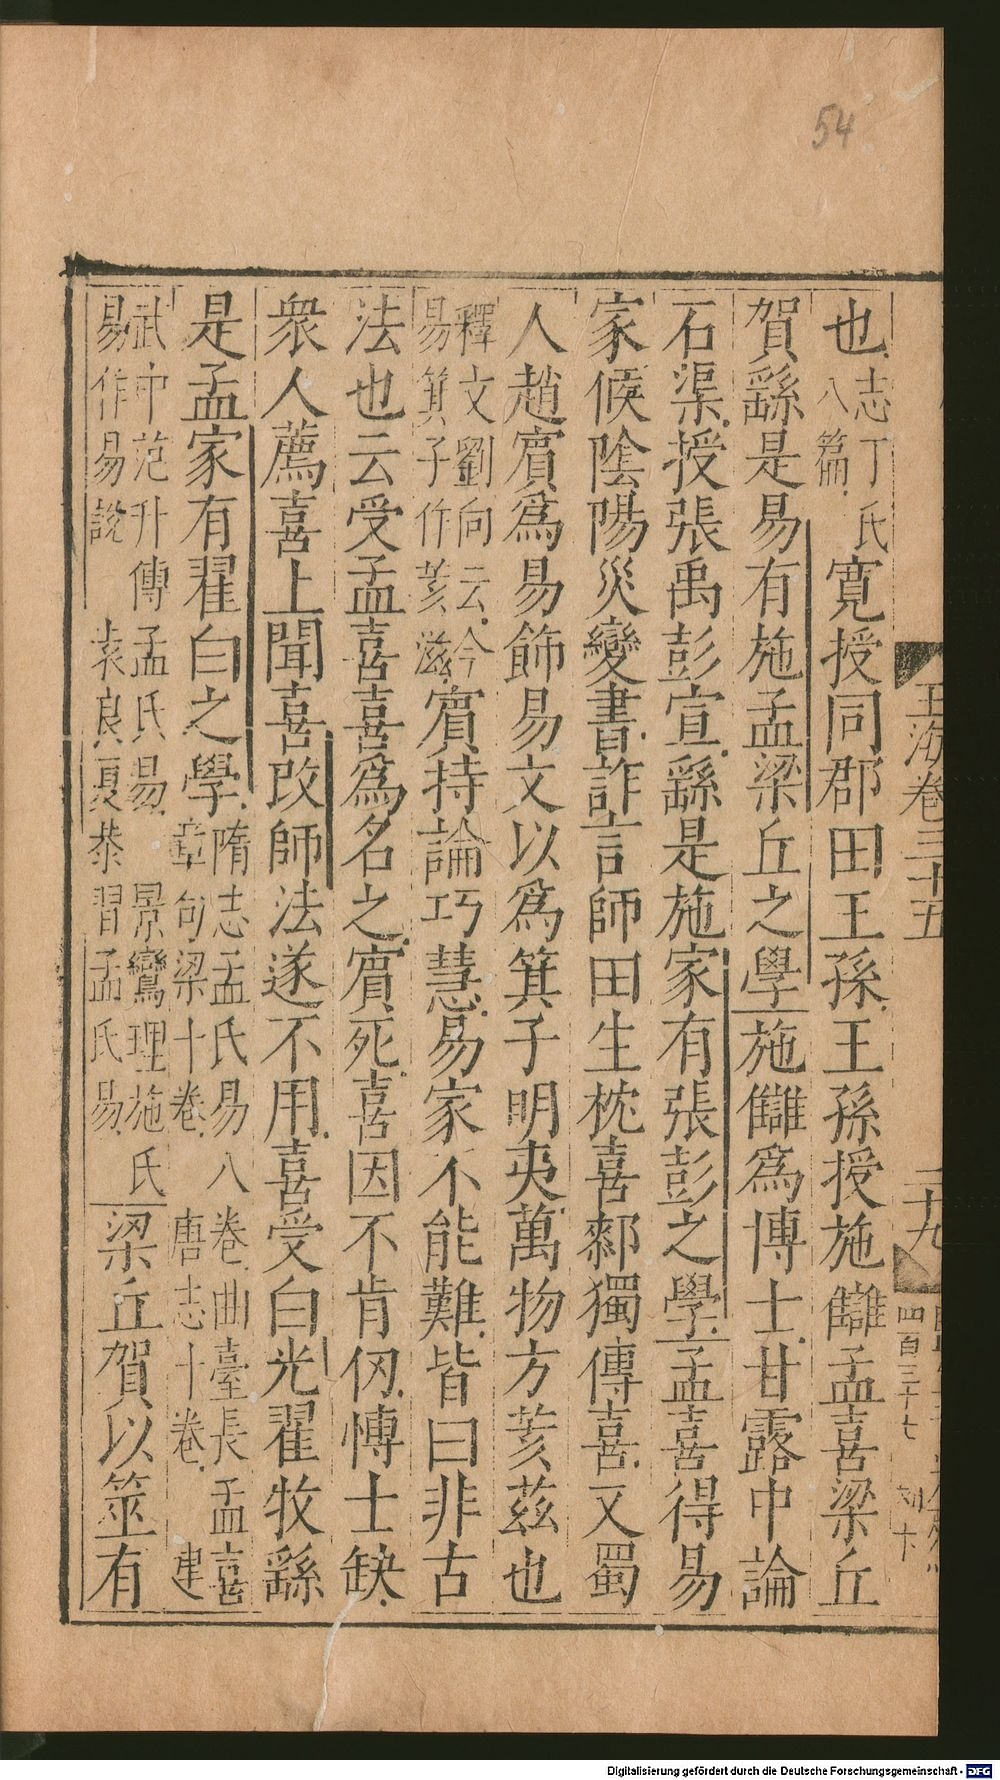 54
玉海卷三十五
二十九
四百三十七
也志丁氏八篇寬授同郡田王孫王孫授施讎孟喜梁丘
賀繇是易有施孟梁丘之學施讎爲博士甘露中論
石渠授張禹彭宣繇是施家有張彭之學孟喜得易
家候陰陽災變書詐言師田生枕喜䣛獨傳喜又蜀
人趙賔爲易飾易文以爲箕子明夷萬物方荄茲也
釋文劉向云今易箕子作荄滋賔持論巧慧易家不能難皆曰非古
法也云受孟喜喜爲名之賔死喜因不肯仭博士缺
衆人薦喜上聞喜改師法遂不用喜受白光翟牧繇
是孟家有翟白之學隋志孟氏易八卷曲臺長孟喜章句梁十卷唐志十卷建
武中范升傳孟氏易景鸞理施氏易作易說袁良夏恭習孟氏易梁丘賀以筮有
Digitalisierung gefördert durch die Deutsche Forschungsgemeinschaft - DFG